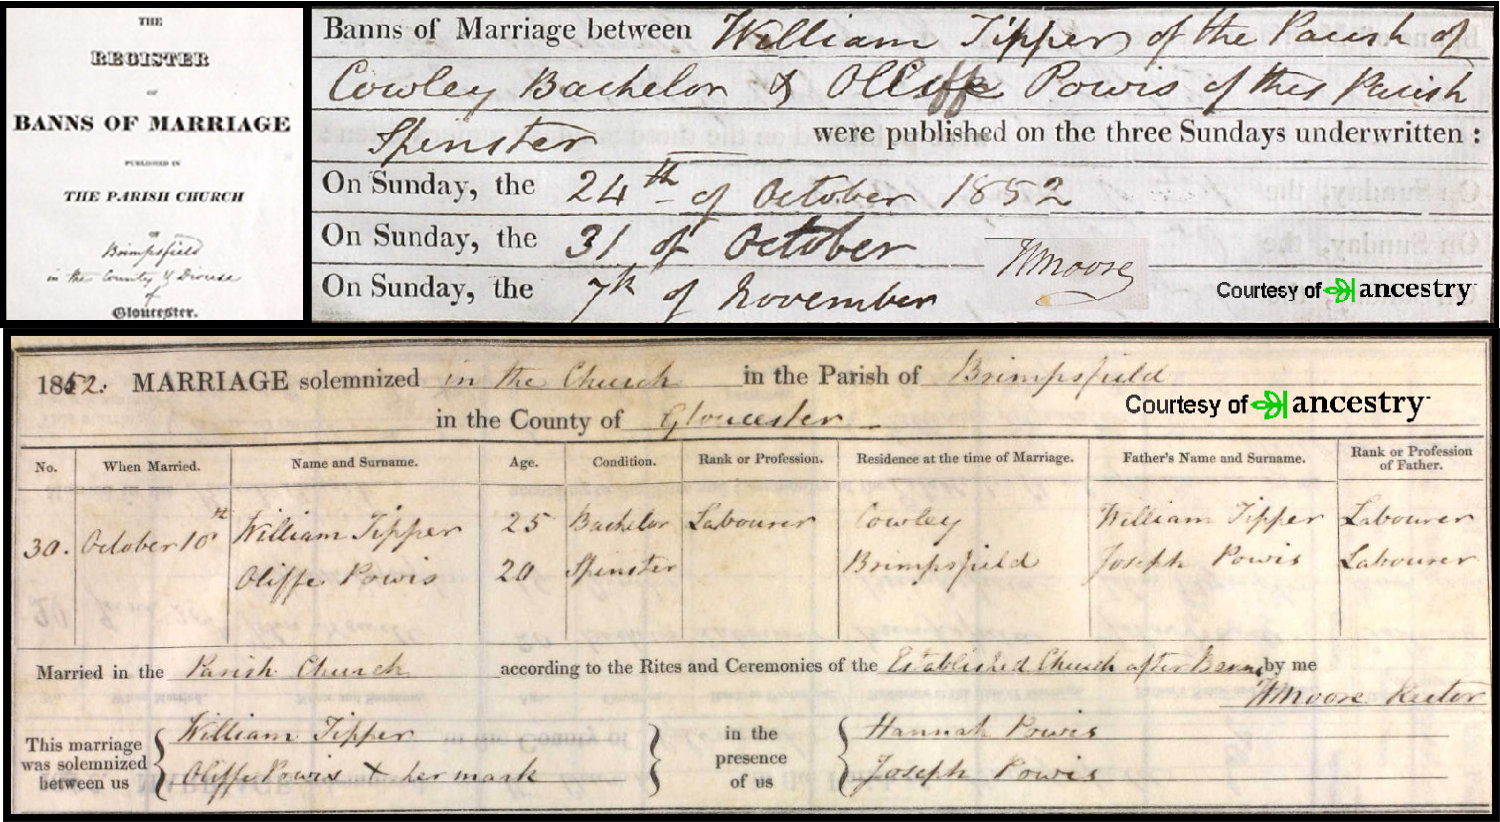 THE
REGISTER
OF
BANNS OF MARRIAGE
PUBLISHED IN
THE PARISH CHURCH
of
Brimpsfield
in the County & Diocese
of
Gloucester.
Banns of Marriage between William Tipper of the Parish of
Cowley Bachelor & Olliffe Powis of this Parish
Spinster were published on the three Sundays underwritten :
On Sunday, the 24th of October 1852
On Sunday, the 31 of October
On Sunday, the 7th of November
WMoore
Courtesy of ancestry
1852. MARRIAGE solemnized in the Church in the Parish of Brimpsfield
in the County of Gloucester
Courtesy of ancestry
No. When Married. Name and Surname. Age. Condition. Rank or Profession. Residence at the time of Marriage. Father's Name and Surname. Rank or Profession of Father.
30. October 10th William Tipper 25 Bachelor Labourer Cowley William Tipper Labourer
Oliffe Powis 20 Spinster Brimpsfield Joseph Powis Labourer
Married in the Parish Church according to the Rites and Ceremonies of the Established Church after Banns by me
WMoore Rector
This marriage was solemnized between us
William Tipper
Oliffe Powis X her mark
in the presence of us
Hannah Powis
Joseph Powis